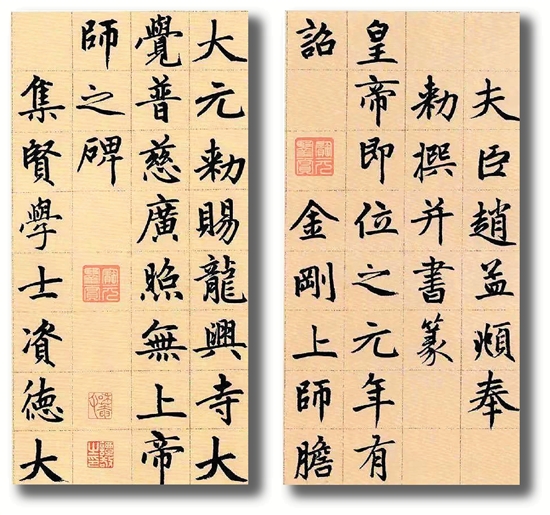 大元勅賜龍興寺大
覺普慈廣照無上帝
師之碑
集賢學士資德大
夫臣趙孟頫奉
勅撰并書篆
皇帝即位之元年有
詔金剛上師膽